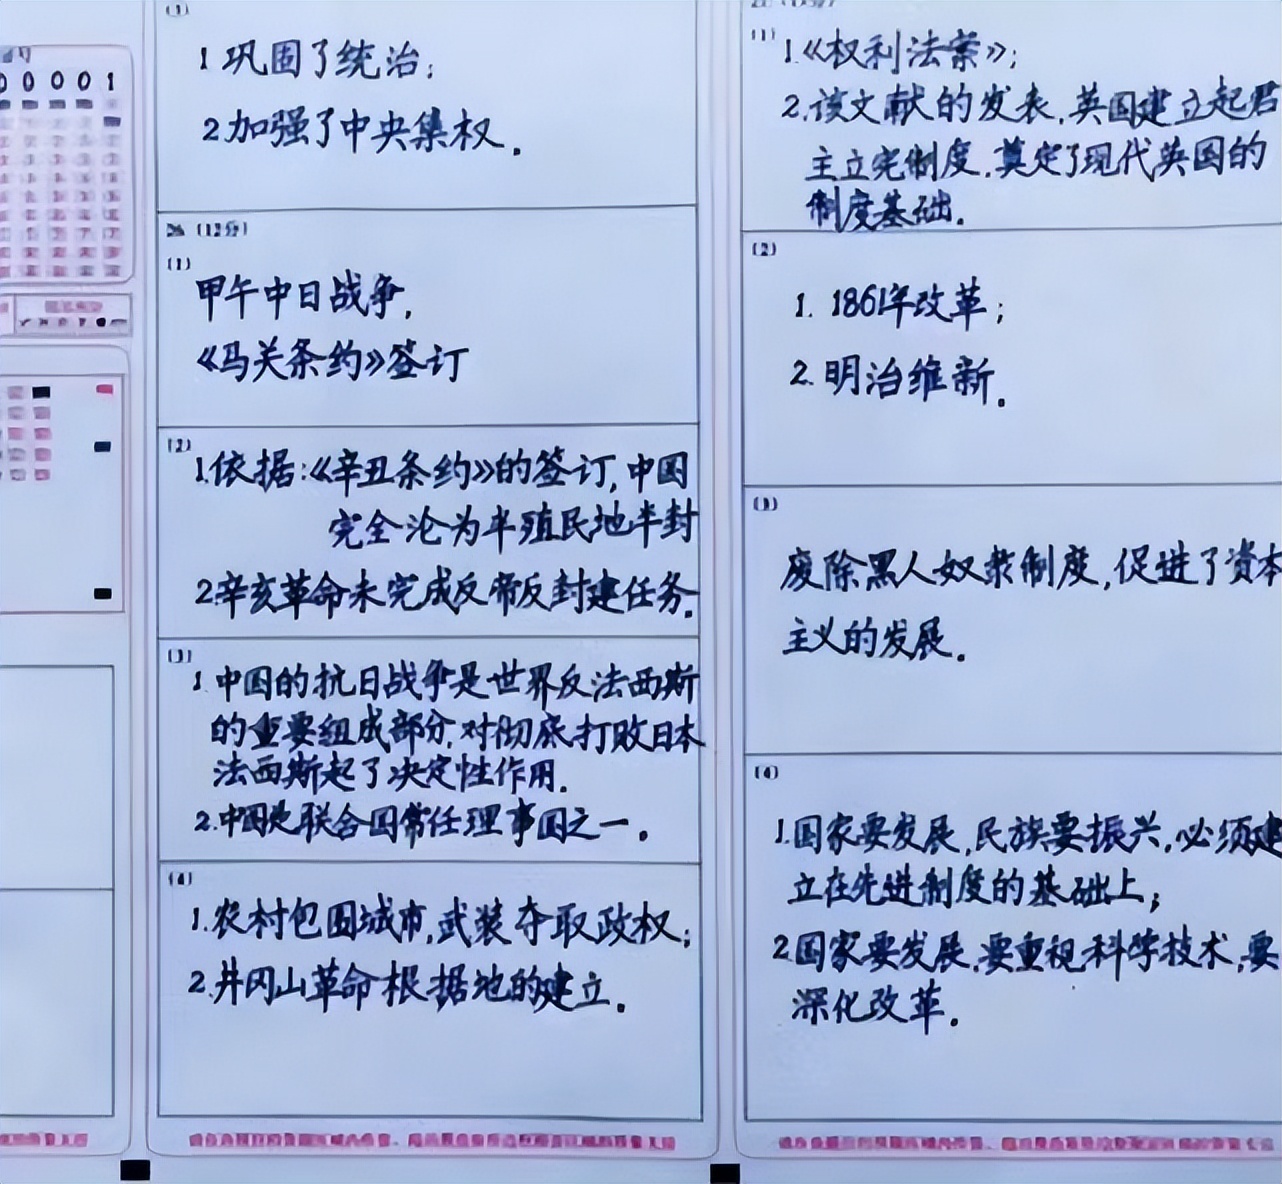 0 0 0 0 1
(1)
1 巩固了统治;
2.加强了中央集权.
26 (12分)
(1)
甲午中日战争,
《马关条约》签订
(2)
1.依据:《辛丑条约》的签订,中国
完全沦为半殖民地半封
2.辛亥革命未完成反帝反封建任务.
(3)
1.中国的抗日战争是世界反法西斯
的重要组成部分,对彻底打败日本
法西斯起了决定性作用.
2.中国是联合国常任理事国之一.
(4)
1.农村包围城市,武装夺取政权;
2.井冈山革命根据地的建立.
(1)
1.《权利法案》;
2.该文献的发表,英国建立起君
主立宪制度,奠定了现代英国的
制度基础.
(2)
1. 1861年改革;
2. 明治维新.
(3)
废除黑人奴隶制度,促进了资本
主义的发展.
(4)
1.国家要发展,民族要振兴,必须建
立在先进制度的基础上;
2.国家要发展,要重视科学技术,要
深化改革.